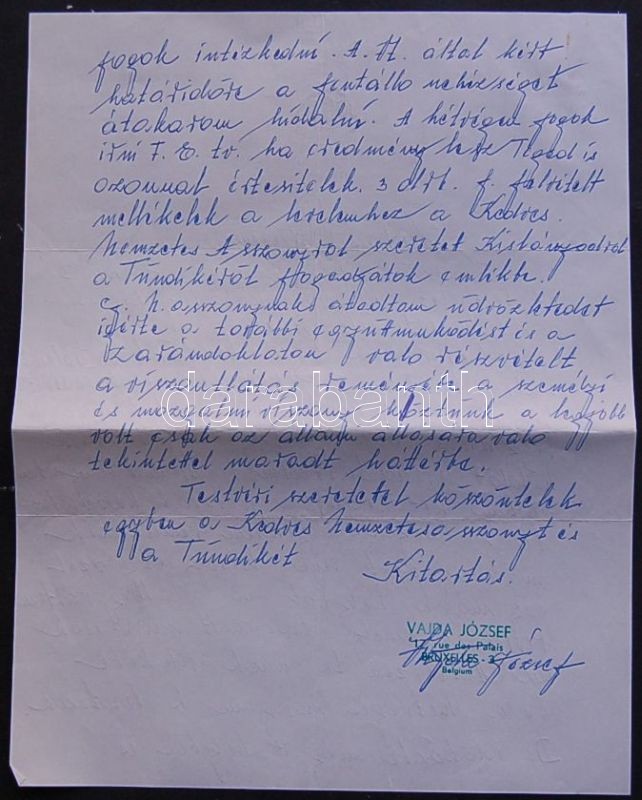 fogok intézkedni. A. M. által kért
határidőre a fentálló nehézséget
át akarom hidalni. A hétvégen fogok
irni F. E. tv. ha eredmény lesz Téged is
azonnal értesitelek. 3 drb. f. felvitelt
mellékelek a levelemhez a Kedves
Nemzetes Asszonyról szeretet Kislányodról
a Tündikéről fogadjátok emlékbe.
N. asszonynak átadtam üdvözleted
igérte a további együtmüködést és a
Zarándoklaton való részvételt
a viszontlátás reményébe a személyi
és mozgalmi viszony köztünk a legjobb
volt csak az állam állására való
tekintettel maradt háttérbe.
Testvéri szeretettel köszöntelek
egyben a Kedves Nemzetesasszonyt és
a Tündikét
Kitartás.
VAJDA JÓZSEF
17, rue des Palais
BRUXELLES - 3
Belgium
Vajda József
darabanth